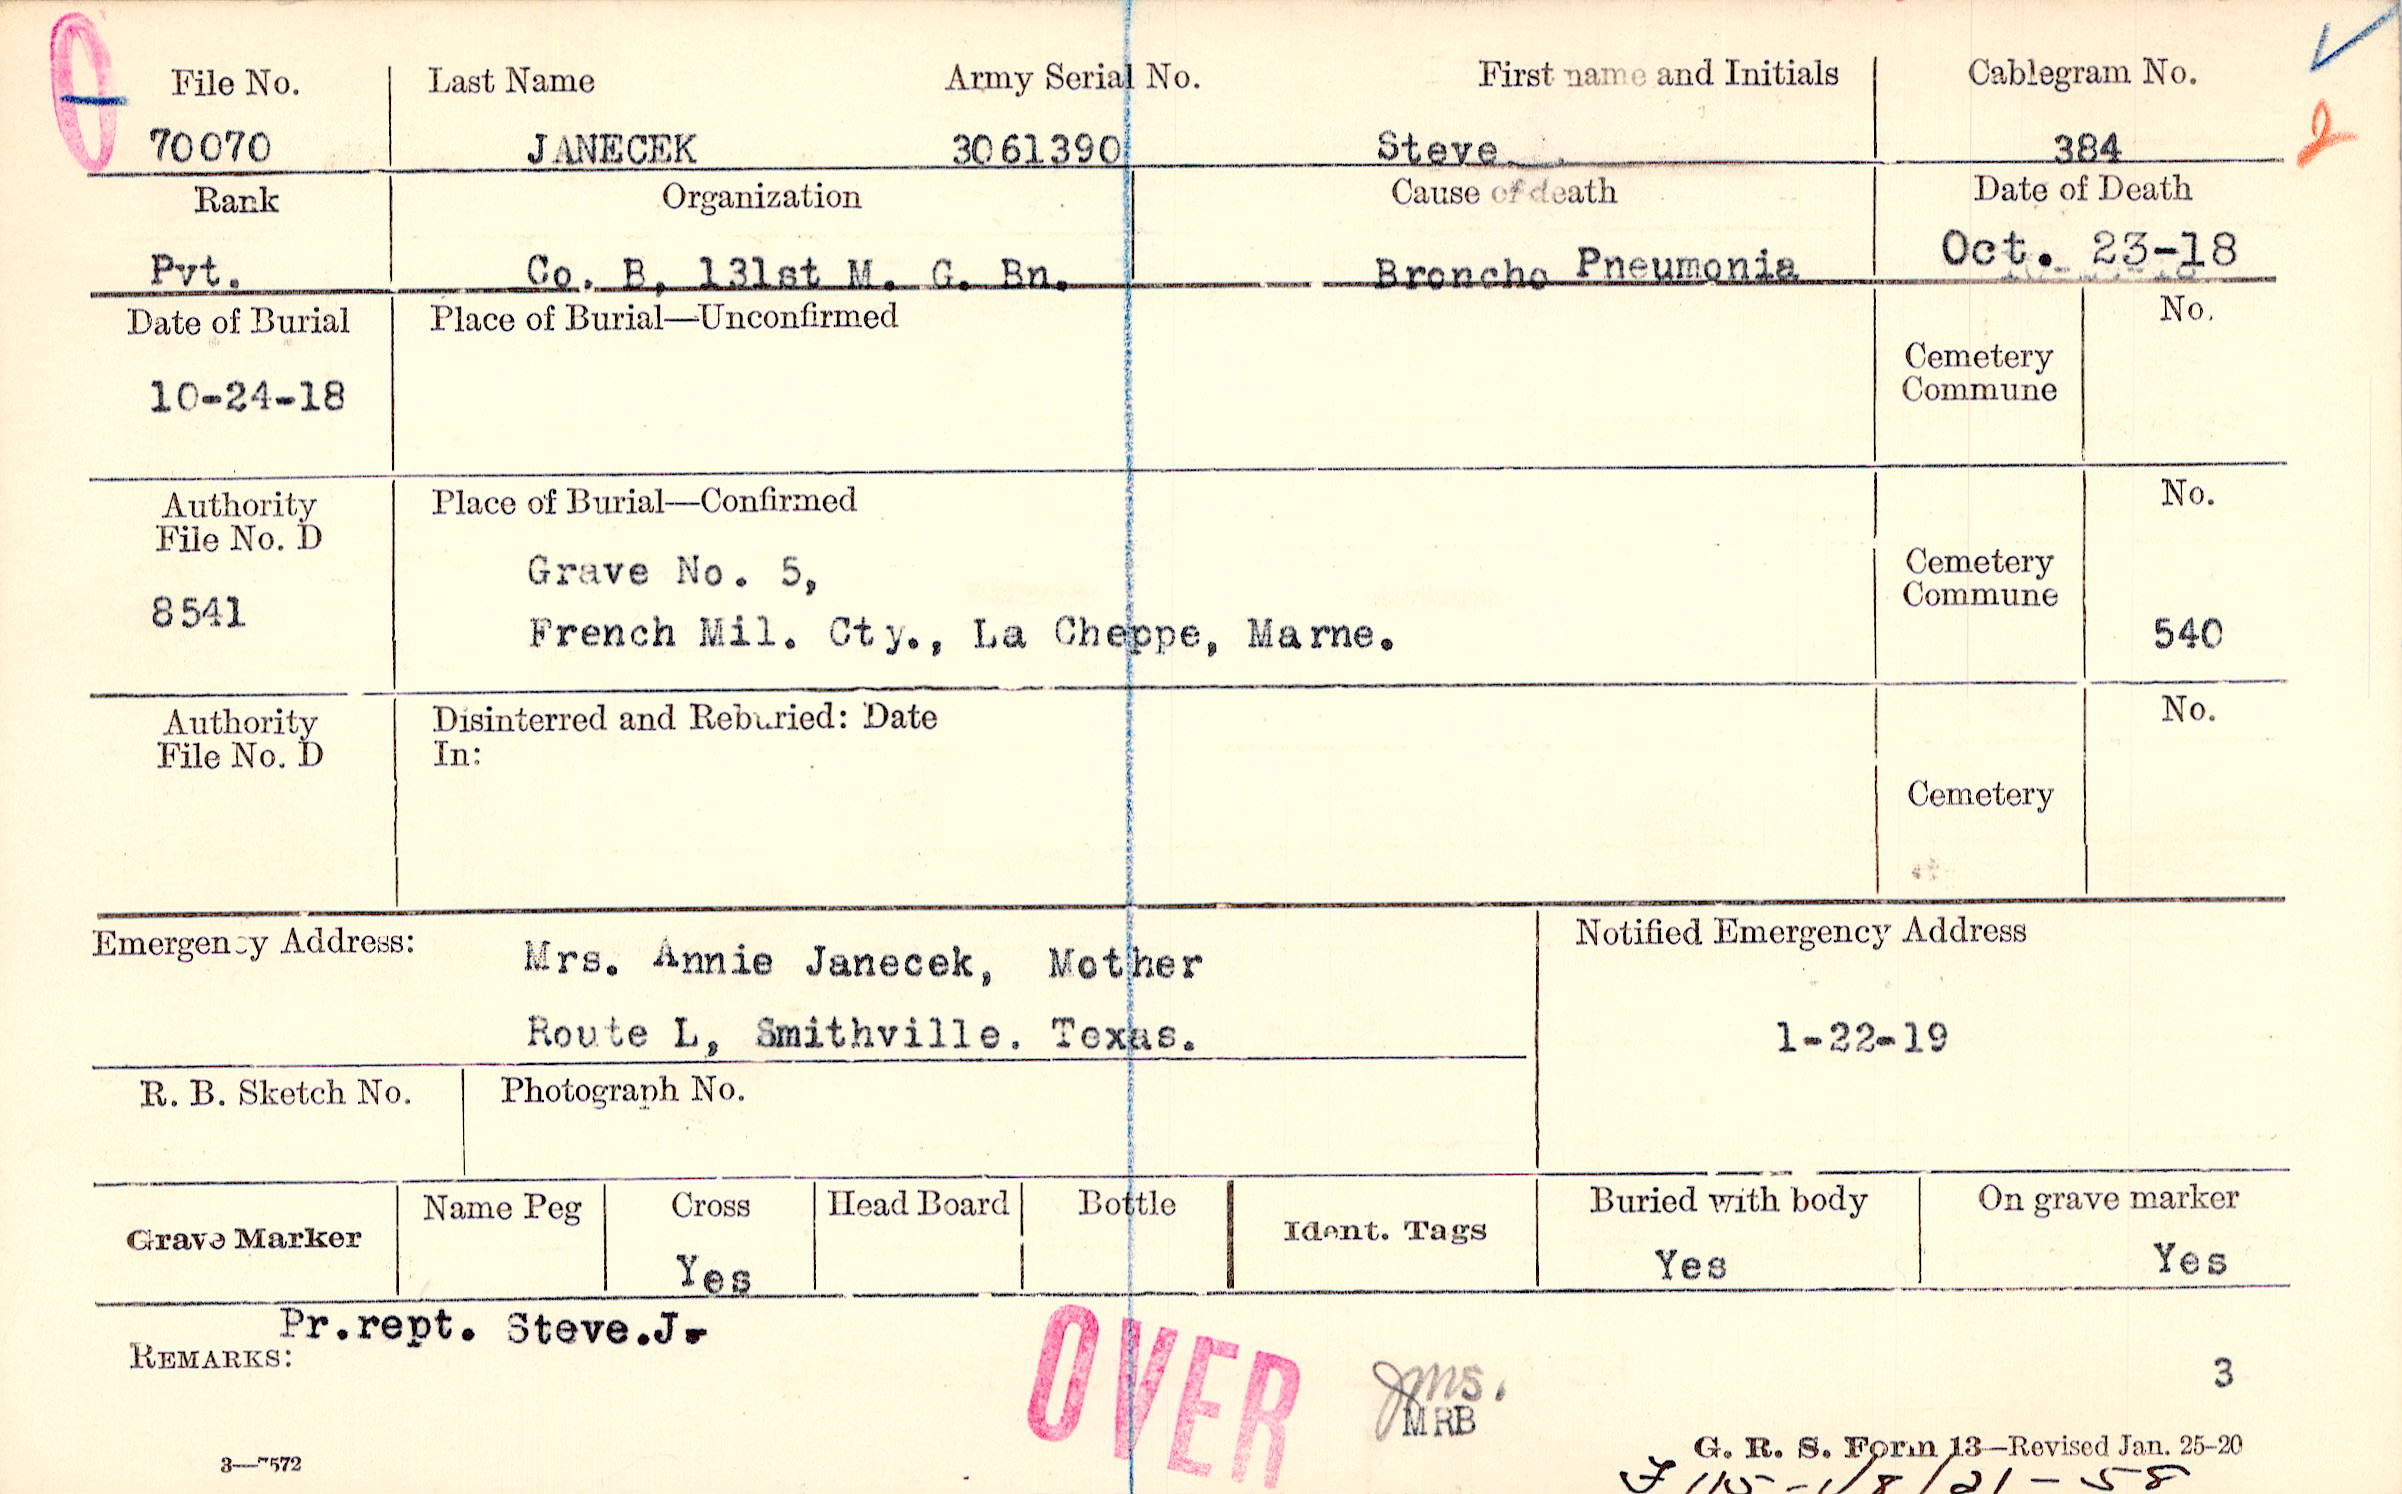 File No. Last Name Army Serial No. First name and Initials Cablegram No.
70070 JANECEK 3061390 Steve 384
2
Rank Organization Cause of death Date of Death
Pvt. Co. B, 131st M. G. Bn. Broncho Pneumonia Oct. 23-18
Date of Burial Place of Burial—Unconfirmed No.
Cemetery
Commune
10-24-18
Authority Place of Burial—Confirmed No.
File No. D
Grave No. 5, Cemetery
Commune
8541 French Mil. Cty., La Cheppe, Marne. 540
Authority Disinterred and Reburied: Date No.
File No. D In:
Cemetery
Emergency Address: Mrs. Annie Janecek, Mother Notified Emergency Address
Route L, Smithville. Texas. 1-22-19
R. B. Sketch No. Photograph No.
Grave Marker Name Peg Cross Head Board Bottle Ident. Tags Buried with body On grave marker
Yes Yes Yes
Pr.rept. Steve.J.
REMARKS:
OVER
jms.
MRB
3
G. R. S. Form 13—Revised Jan. 25-20
3—7572